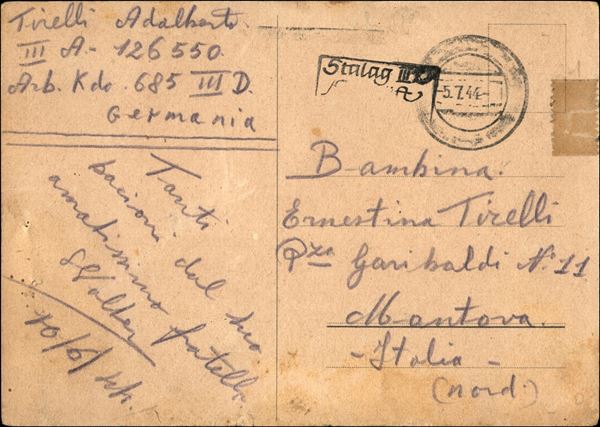 Tirelli Adalberto.
III A.- 126550.
Arb. Kdo. 685 III D.
Germania
Tanti
bacioni dal tuo
amatissimo fratello
Walter
10/6/44.
Stalag III
5.7.44
Bambina.
Ernestina Tirelli
Pza Garibaldi N. 11
Mantova.
- Italia -
(nord.)